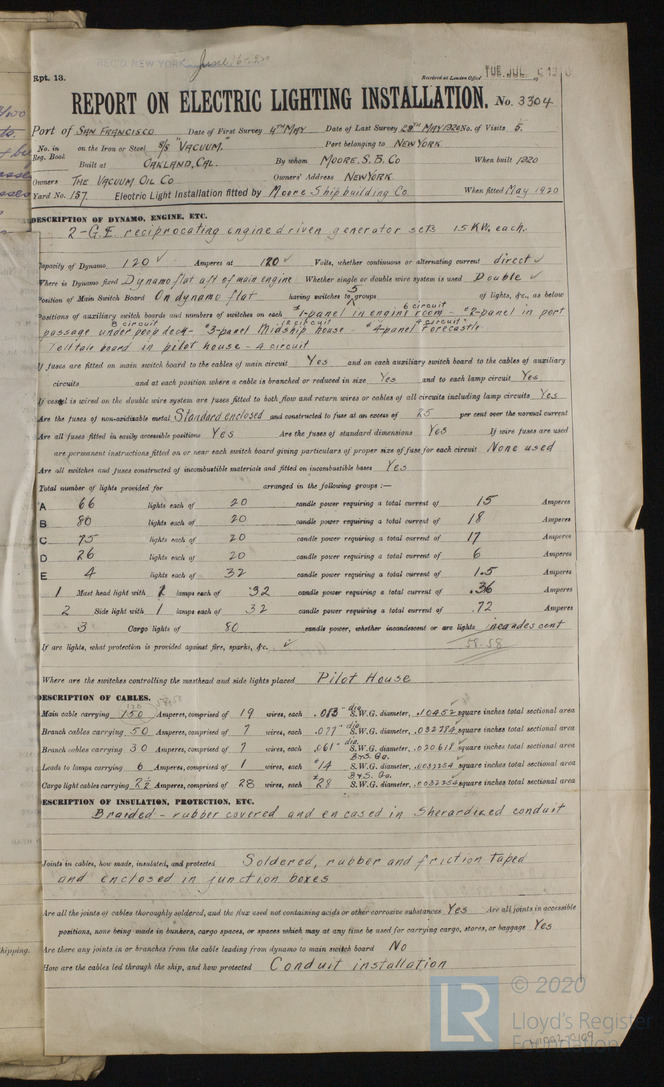 REC'D NEW YORK June 16-20
Rpt. 13.
Received at London Office TUE. JUL. 6 1920
REPORT ON ELECTRIC LIGHTING INSTALLATION. No. 3304
Port of SAN FRANCISCO Date of First Survey 4TH MAY Date of Last Survey 28TH MAY 1920 No. of Visits 5.
No. in Reg. Book on the Iron or Steel S/S "VACUUM." Port belonging to NEW YORK
Built at OAKLAND, CAL. By whom MOORE. S. B. CO When built 1920
Owners THE VACUUM OIL CO Owners' Address NEW YORK
Yard No. 157. Electric Light Installation fitted by Moore Shipbuilding Co. When fitted May 1920
DESCRIPTION OF DYNAMO, ENGINE, ETC.
2-G.E. reciprocating engine driven generator sets 15 KW. each.
Capacity of Dynamo 120 ✓ Amperes at 120 ✓ Volts, whether continuous or alternating current direct ✓
Where is Dynamo fixed Dynamo flat aft of main engine Whether single or double wire system is used Double ✓
Position of Main Switch Board On dynamo flat having switches to 5 groups of lights, &c., as below
Positions of auxiliary switch boards and numbers of switches on each #1-panel in engine room - 6 circuit #2-panel in port
passage under poop deck - 8 circuit #3-panel Midship house - 12 circuit #4-panel Forecastle circuit
Telltale board in pilot house - 4 circuit
If fuses are fitted on main switch board to the cables of main circuit Yes and on each auxiliary switch board to the cables of auxiliary
circuits and at each position where a cable is branched or reduced in size Yes and to each lamp circuit Yes
If vessel is wired on the double wire system are fuses fitted to both flow and return wires or cables of all circuits including lamp circuits Yes
Are the fuses of non-oxidizable metal Standard enclosed and constructed to fuse at an excess of 25 per cent over the normal current
Are all fuses fitted in easily accessible positions Yes Are the fuses of standard dimensions Yes If wire fuses are used
are permanent instructions fitted on or near each switch board giving particulars of proper size of fuse for each circuit None used
Are all switches and fuses constructed of incombustible materials and fitted on incombustible bases Yes
Total number of lights provided for arranged in the following groups :—
A 66 lights each of 20 candle power requiring a total current of 15 Amperes
B 80 lights each of 20 candle power requiring a total current of 18 Amperes
C 75 lights each of 20 candle power requiring a total current of 17 Amperes
D 26 lights each of 20 candle power requiring a total current of 6 Amperes
E 4 lights each of 32 candle power requiring a total current of 1.5 Amperes
1 Mast head light with 1 lamps each of 32 candle power requiring a total current of .36 Amperes
2 Side light with 1 lamps each of 32 candle power requiring a total current of .72 Amperes
3 Cargo lights of 80 candle power, whether incandescent or arc lights incandescent
If arc lights, what protection is provided against fire, sparks, &c. ✓ 58.58
Where are the switches controlling the masthead and side lights placed Pilot House
DESCRIPTION OF CABLES.
Main cable carrying 150 120 Amperes, comprised of 19 wires, each .083" dia. S.W.G. diameter, .10452 square inches total sectional area
Branch cables carrying 50 Amperes, comprised of 7 wires, each .077" dia. S.W.G. diameter, .032784 square inches total sectional area
Branch cables carrying 30 Amperes, comprised of 7 wires, each .061" dia. S.W.G. diameter, .020618 square inches total sectional area
Leads to lamps carrying 6 Amperes, comprised of 1 wires, each #14 B&S. Ga. S.W.G. diameter, .0032254 square inches total sectional area
Cargo light cables carrying 2½ Amperes, comprised of 28 wires, each #28 B&S. Ga. S.W.G. diameter, .0032254 square inches total sectional area
DESCRIPTION OF INSULATION, PROTECTION, ETC.
Braided - rubber covered and encased in Sherardized conduit
Joints in cables, how made, insulated, and protected Soldered, rubber and friction taped
and enclosed in junction boxes
Are all the joints of cables thoroughly soldered, and the flux used not containing acids or other corrosive substances Yes Are all joints in accessible
positions, none being made in bunkers, cargo spaces, or spaces which may at any time be used for carrying cargo, stores, or baggage Yes
Are there any joints in or branches from the cable leading from dynamo to main switch board No
How are the cables led through the ship, and how protected Conduit installation
shipping.
© 2020
LR Lloyd's Register
Foundation